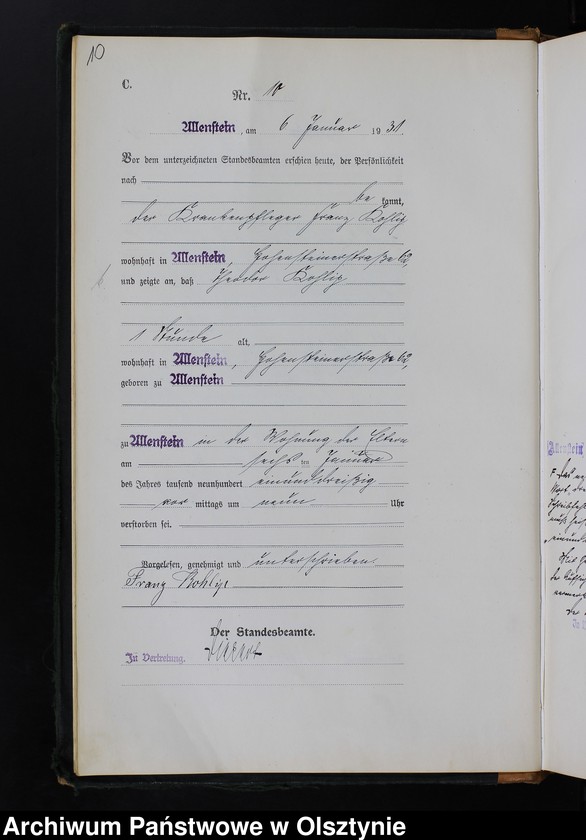 10
C.
Nr. 10
Allenstein, am 6 Januar 1931.
Vor dem unterzeichneten Standesbeamten erschien heute, der Persönlichkeit
nach
be kannt,
der Krankenpfleger Franz Kohlig
wohnhaft in Allenstein, Hohensteinerstraße 62,
und zeigte an, daß Theodor Kohlig
1 Stunde alt,
wohnhaft in Allenstein, Hohensteinerstraße 62,
geboren zu Allenstein
zu Allenstein in der Wohnung der Eltern
am sechs ten Januar
des Jahres tausend neunhundert einunddreißig
vor mittags um neun Uhr
verstorben sei.
Vorgelesen, genehmigt und unterschrieben.
Franz Kohlig
Der Standesbeamte.
In Vertretung.
Archiwum Państwowe w Olsztynie